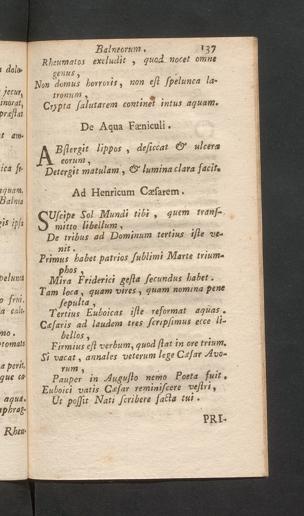 Balneorum. 137
Rheumatos excludit, quod nocet omne
genus,
Non domus horroris, non est spelunca la-
tronum,
Crypta salutarem continet intus aquam.
De Aqua Fœniculi.
ABstergit lippos, desiccat & ulcera
eorum,
Detergit matulam, & lumina clara facit.
Ad Henricum Cæsarem.
SUscipe Sol Mundi tibi, quem trans-
mitto libellum,
De tribus ad Dominum tertius iste ve-
nit.
Primus habet patrios sublimi Marte trium-
phos,
Mira Friderici gesta secundus habet.
Tam loca, quam vires, quam nomina pene
sepulta,
Tertius Euboicas iste reformat aquas.
Cæsaris ad laudem tres scripsimus ecce li-
bellos,
Firmius est verbum, quod stat in ore trium.
Si vacat, annales veterum lege Cæsar Avo-
rum,
Pauper in Augusto nemo Poeta fuit.
Euboici vatis Cæsar reminiscere vestri,
Ut possit Nati scribere facta tui.
PRI-